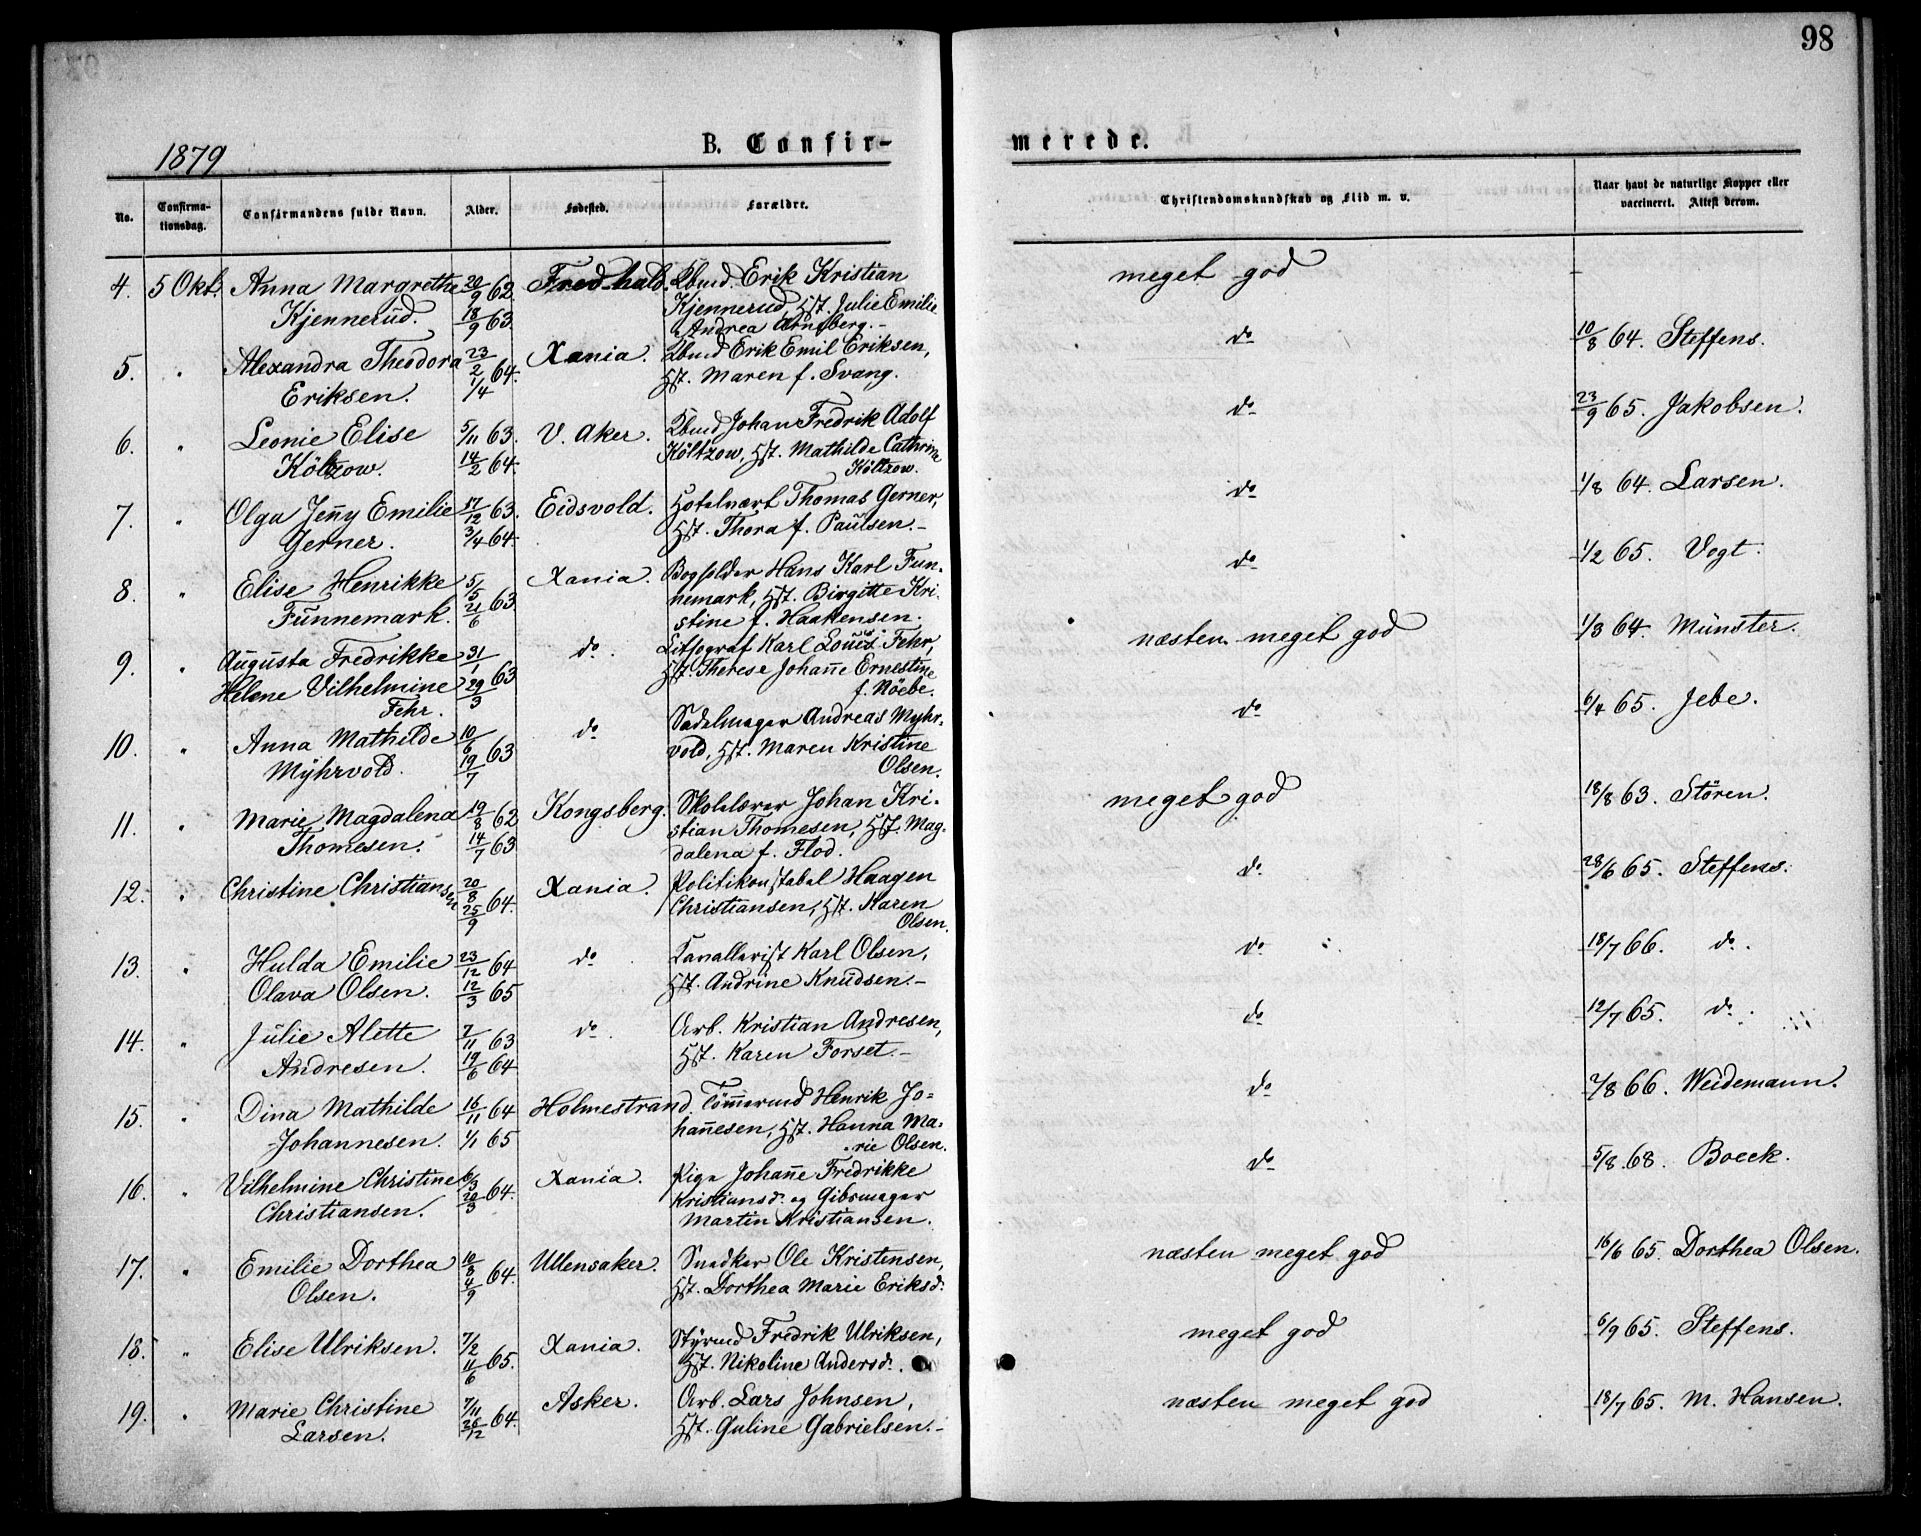 98
1879
B. Confir-
merede.
No.
Confirma-
tionsdag.
Confirmandens fulde Navn.
Alder.
Fødested.
Forældre.
Christendomskundskab og Flid m. v.
Naar havt de naturlige Kopper eller
vaccineret. Attest derom.
4. 5 Okt. Anna Margrethe 20/9 62. Fredhald. Kbmd. Erik Kristian meget god -
Kjennerud. 18/9 63 Kjennerud, Hst. Julie Emilie
Andrea Arntberg.-
5. " Alexandra Theodora 23/2 64. Xania. Kbmd Erik Emil Eriksen, do 10/8 64. Steffens.
Eriksen. 1/4 Hst. Maren f. Svang.
6. " Leonie Elise 5/11 63. V. Aker. Kbmd Johan Fredrik Adolf do 23/9 65. Jakobsen.
Költzow. 14/2 64. Költzow, Hst. Mathilde Cathrine
Költzow.
7. " Olga Jenny Emilie 17/12 63. Eidsvold. Hotelvært Thomas Gerner, do 1/8 64. Larsen.
Gerner. 3/4 64. Hst. Thora f. Paulsen.-
8. " Elise Henrikke 5/5 63 Xania. Bogholder Hans Karl Fun- do 1/2 65. Vogt.
Funnemark. 21/6 nemark, Hst. Birgitte Kri-
stine f. Haakensen.
9. " Augusta Fredrikke 31/1 63 do. Lithograf Karl Louis Fehr, næsten meget god 1/8 64. Münster.
Helene Vilhelmine 29/3 Hst. Therese Johanne Ernestine
Fehr. f. Nöebe.
10. " Anna Mathilde 10/6 63 do Sadelmager Andreas Myhr- do 6/4 65. Jebe.
Myhrvold. 19/7 vold, Hst. Maren Kristine
Olsen.
11. " Marie Magdalena 19/8 62 Kongsberg. Skolelærer Johan Kri- meget god 18/8 63. Stören.
Thomesen. 14/7 63 stian Thomesen, Hst. Mag-
dalena f. Flod.
12. " Christine Christiansen 20/8 64. Xania. Politikonstabel Haagen do 28/6 65. Steffens.
25/9 Christiansen, Hst. Karen
Olsen.
13. " Hulda Emilie 23/12 64 do. Kavallerist Karl Olsen, do 18/7 66. do.
Olava Olsen. 12/3 65 Hst. Andrine Knudsen.-
14. " Julie Alette 7/11 63 do. Arb. Kristian Andresen, do 12/7 65. do.
Andresen. 19/6 64 Hst. Karen Forset.-
15. " Dina Mathilde 16/11 64 Holmestrand. Tömmermd Henrik Jo- do 7/8 66. Weidemann.
Johannesen. 1/1 65 hannesen, Hst. Hanna Ma-
rie Olsen.
16. " Vilhelmine Christine 6/3 64. Xania. Pige Johanne Fredrikke do 5/8 68. Boeck.
Christiansen. 20/3 Kristiansd. og Gibsmager
Martin Kristiansen.
17. " Emilie Dorthea 10/8 64. Ullensaker. Snedker Ole Kristensen, næsten meget god 16/6 65. Dorthea Olsen.
Olsen. 4/9 Hst. Dorthea Marie Eriksd.
18. " Elise Ulriksen. 7/2 65. Xania. Styrmd Fredrik Ulriksen, meget god 6/9 65. Steffens.
11/6 Hst. Nikoline Andersd.
19. " Marie Christine 7/11 64. Asker. Arb. Lars Johnsen, næsten meget god 18/7 65. M. Hansen.
Larsen. 26/12 Hst. Guline Gabrielsen.-